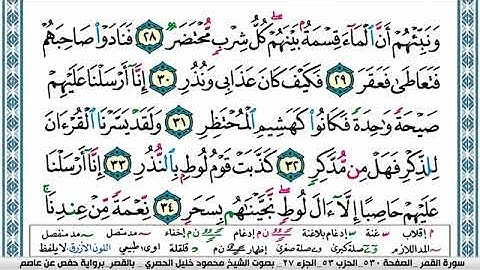 وَنَبِّئْهُمْ أَنَّ ٱلْمَآءَ قِسْمَةٌۢ بَيْنَهُمْ ۖ كُلُّ شِرْبٍ مُّحْتَضَرٌ ٢٨ فَنَادَوْا۟ صَاحِبَهُمْ
فَتَعَاطَىٰ فَعَقَرَ ٢٩ فَكَيْفَ كَانَ عَذَابِى وَنُذُرِ ٣٠ إِنَّآ أَرْسَلْنَا عَلَيْهِمْ
صَيْحَةً وَٰحِدَةً فَكَانُوا۟ كَهَشِيمِ ٱلْمُحْتَظِرِ ٣١ وَلَقَدْ يَسَّرْنَا ٱلْقُرْءَانَ
لِلذِّكْرِ فَهَلْ مِن مُّدَّكِرٍ ٣٢ كَذَّبَتْ قَوْمُ لُوطٍۭ بِٱلنُّذُرِ ٣٣ إِنَّآ أَرْسَلْنَا
عَلَيْهِمْ حَاصِبًا إِلَّآ ءَالَ لُوطٍ ۖ نَّجَّيْنَٰهُم بِسَحَرٍ ٣٤ نِّعْمَةً مِّنْ عِندِنَا ۚ
م إقلاب غنة إدغام بلاغنة ن م إدغام ن م إخفاء مد متصل مد منفصل
المد اللازم صلة كبرى صلة صغرى إظهار ن م قلقلة اوى طبيعي اللون الأزرق لا يلفظ
سورة القمر _ الصفحة ٥٣٠_ الحزب ٥٣_ الجزء ٢٧ _ بصوت الشيخ محمود خليل الحصري _ بالقصر_برواية حفص عن عاصم